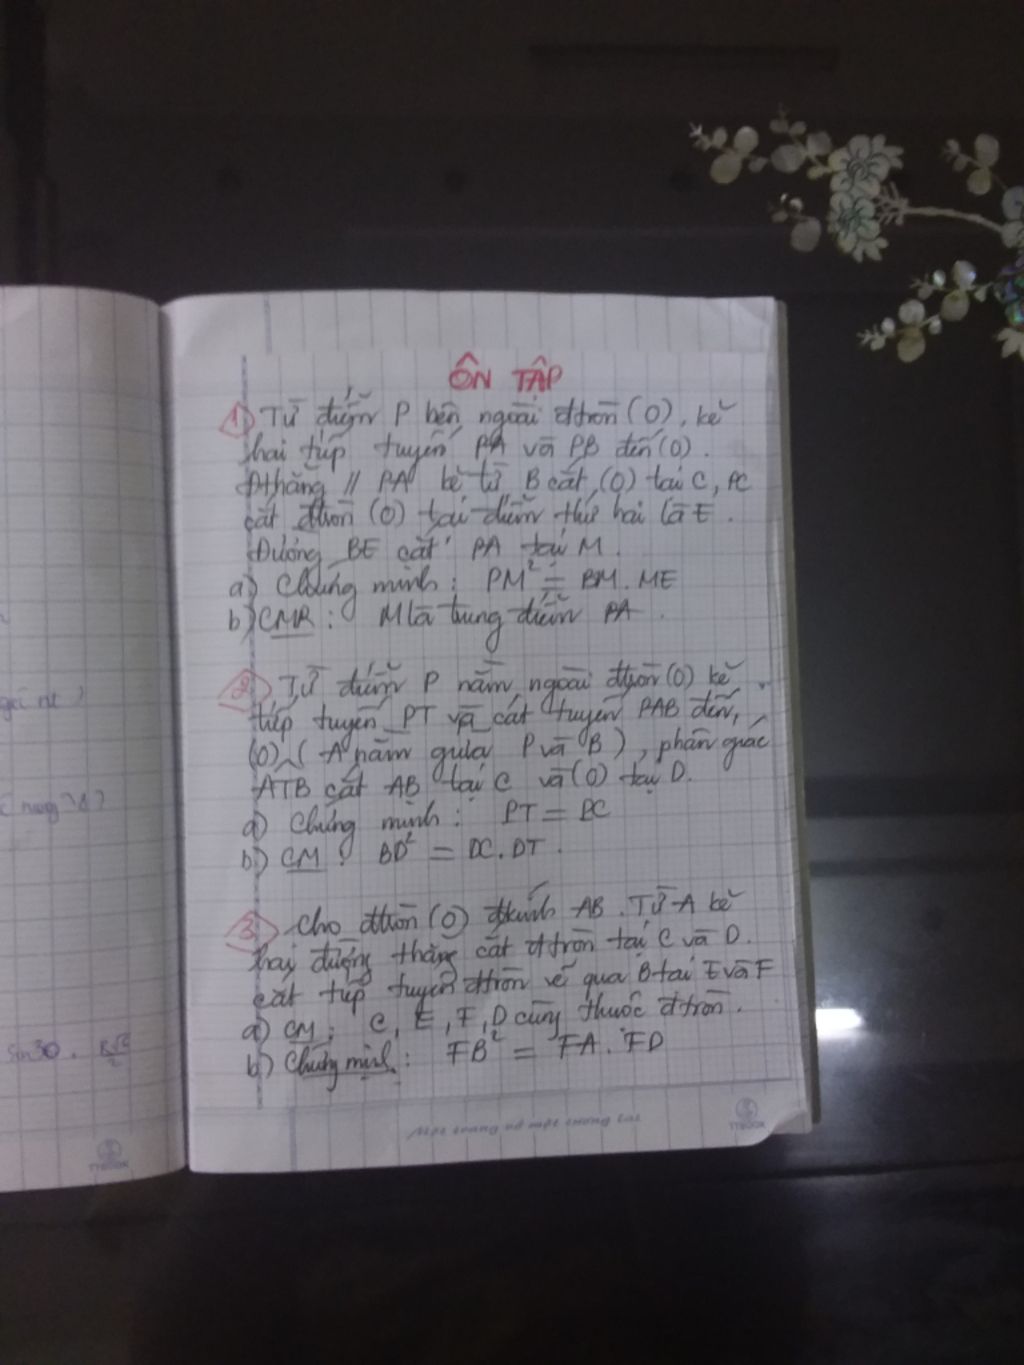 ÔN TẬP
1) Từ điểm P bên ngoài đtròn (O), kẻ
hai tiếp tuyến PA và PB đến (O).
Đthẳng // PA kẻ từ B cắt (O) tại C, PC
cắt đtròn (O) tại điểm thứ hai là E.
Đường BE cắt PA tại M.
a) Chứng minh: PM² = BM.ME
b) CMR: M là trung điểm PA.
2) Từ điểm P nằm ngoài đtròn (O) kẻ
tiếp tuyến PT và cát tuyến PAB đến
(O) (A nằm giữa P và B), phân giác
ATB cắt AB tại C và (O) tại D.
a) Chứng minh: PT = PC
b) CM: BD² = DC.DT.
3) Cho đtròn (O) đkính AB. Từ A kẻ
hai đường thẳng cắt đtròn tại C và D
cắt tiếp tuyến đtròn vẽ qua B tại E và F
a) CM: C, E, F, D cùng thuộc đtròn.
b) Chứng minh: FB² = FA.FD
Sin30.
TTBOOK
TTBOOK